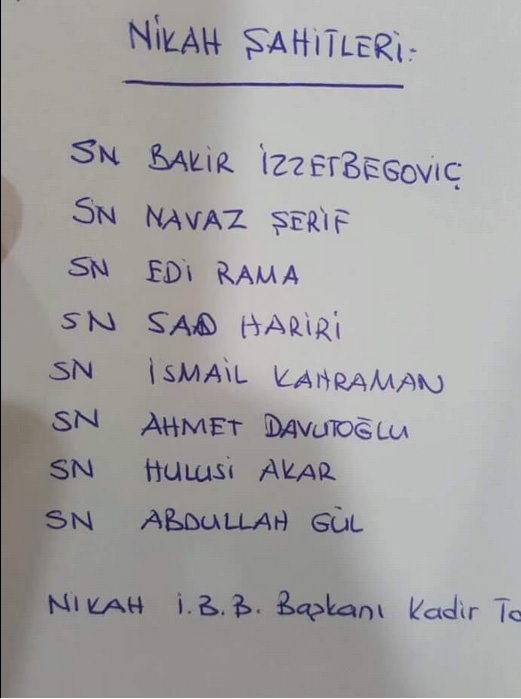 NİKAH ŞAHİTLERİ:
SN BAKİR İZZETBEGOVİÇ
SN NAVAZ ŞERİF
SN EDİ RAMA
SN SAAD HARİRİ
SN İSMAİL KAHRAMAN
SN AHMET DAVUTOĞLU
SN HULUSİ AKAR
SN ABDULLAH GÜL
NIKAH İ.B.B. Başkanı Kadir To